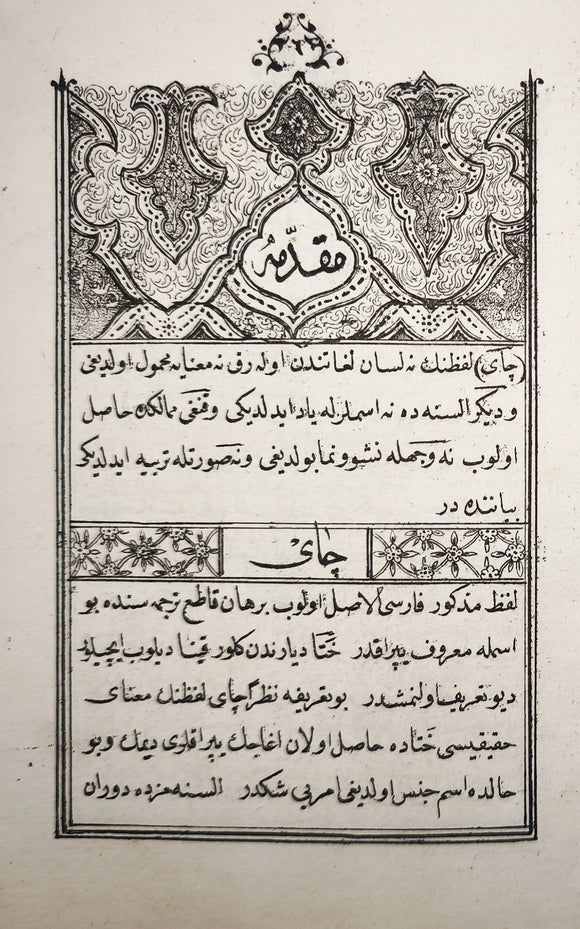 ٢
مقدّمه
(چای) لفظنك نه لسان لغاتندن اوله رق نه معنایه محمول اولدیغی
و دیكر السنه ده نه اسملرله یاد ایدلدیكی و قنغی ممالكده حاصل
اولوب نه وجهله نشو و نما بولدیغی و نه صورتله تربیه ایدلدیكی
بیاننده در
چای
لفظ مذكور فارسی الاصل اولوب برهان قاطع ترجمه سنده بو
اسمله معروف یپراقدر ختا دیارندن كلور قینا دیلوب ایچیلور
دیو تعریف اولنمشدر بو تعریفه نظراً چای لفظنك معنای
حقیقیسی ختاده حاصل اولان اغاجك یپراقلری دیمك و بو
حالده اسم جنس اولدیغی امر بی شكدر السنه مزده دوران